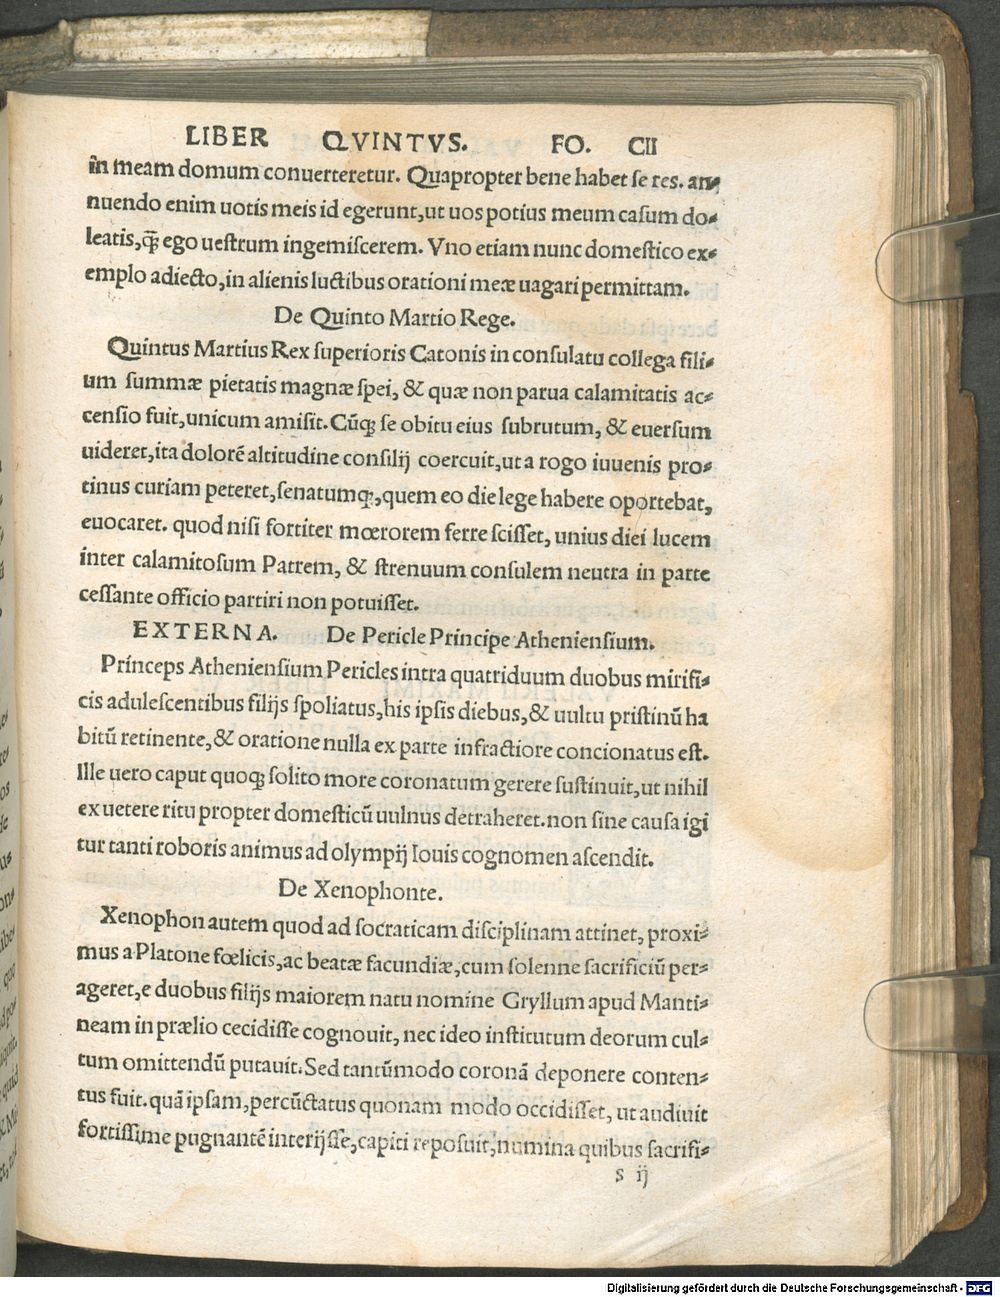 LIBER QVINTVS. FO. CII
in meam domum conuerteretur. Quapropter bene habet se res. an⸗
nuendo enim uotis meis id egerunt, ut uos potius meum casum do⸗
leatis, q̃ꝫ ego uestrum ingemiscerem. Vno etiam nunc domestico ex⸗
emplo adiecto, in alienis luctibus orationi meæ uagari permittam.
De Quinto Martio Rege.
Quintus Martius Rex superioris Catonis in consulatu collega fili⸗
um summæ pietatis magnæ spei, & quæ non parua calamitatis ac⸗
censio fuit, unicum amisit. Cũqꝫ se obitu eius subrutum, & euersum
uideret, ita dolorẽ altitudine consilij coercuit, ut a rogo iuuenis pro⸗
tinus curiam peteret, senatumqꝫ, quem eo die lege habere oportebat,
euocaret. quod nisi fortiter mœrorem ferre scisset, unius diei lucem
inter calamitosum Patrem, & strenuum consulem neutra in parte
cessante officio partiri non potuisset.
EXTERNA. De Pericle Principe Atheniensium.
Princeps Atheniensium Pericles intra quatriduum duobus mirifi⸗
cis adulescentibus filijs spoliatus, his ipsis diebus, & uultu pristinũ ha
bitũ retinente, & oratione nulla ex parte infractiore concionatus est.
Ille uero caput quoqꝫ solito more coronatum gerere sustinuit, ut nihil
ex uetere ritu propter domesticũ uulnus detraheret. non sine causa igi
tur tanti roboris animus ad olympij Iouis cognomen ascendit.
De Xenophonte.
Xenophon autem quod ad socraticam disciplinam attinet, proxi⸗
mus a Platone fœlicis, ac beatæ facundiæ, cum solenne sacrificiũ per⸗
ageret, e duobus filijs maiorem natu nomine Gryllum apud Manti⸗
neam in prælio cecidisse cognouit, nec ideo institutum deorum cul⸗
tum omittendũ putauit. Sed tantũmodo coronã deponere conten⸗
tus fuit. quã ipsam, percũctatus quonam modo occidisset, ut audiuit
fortissime pugnantẽ interijsse, capiti reposuit, numina quibus sacrifi⸗
s ij
Digitalisierung gefördert durch die Deutsche Forschungsgemeinschaft - DFG